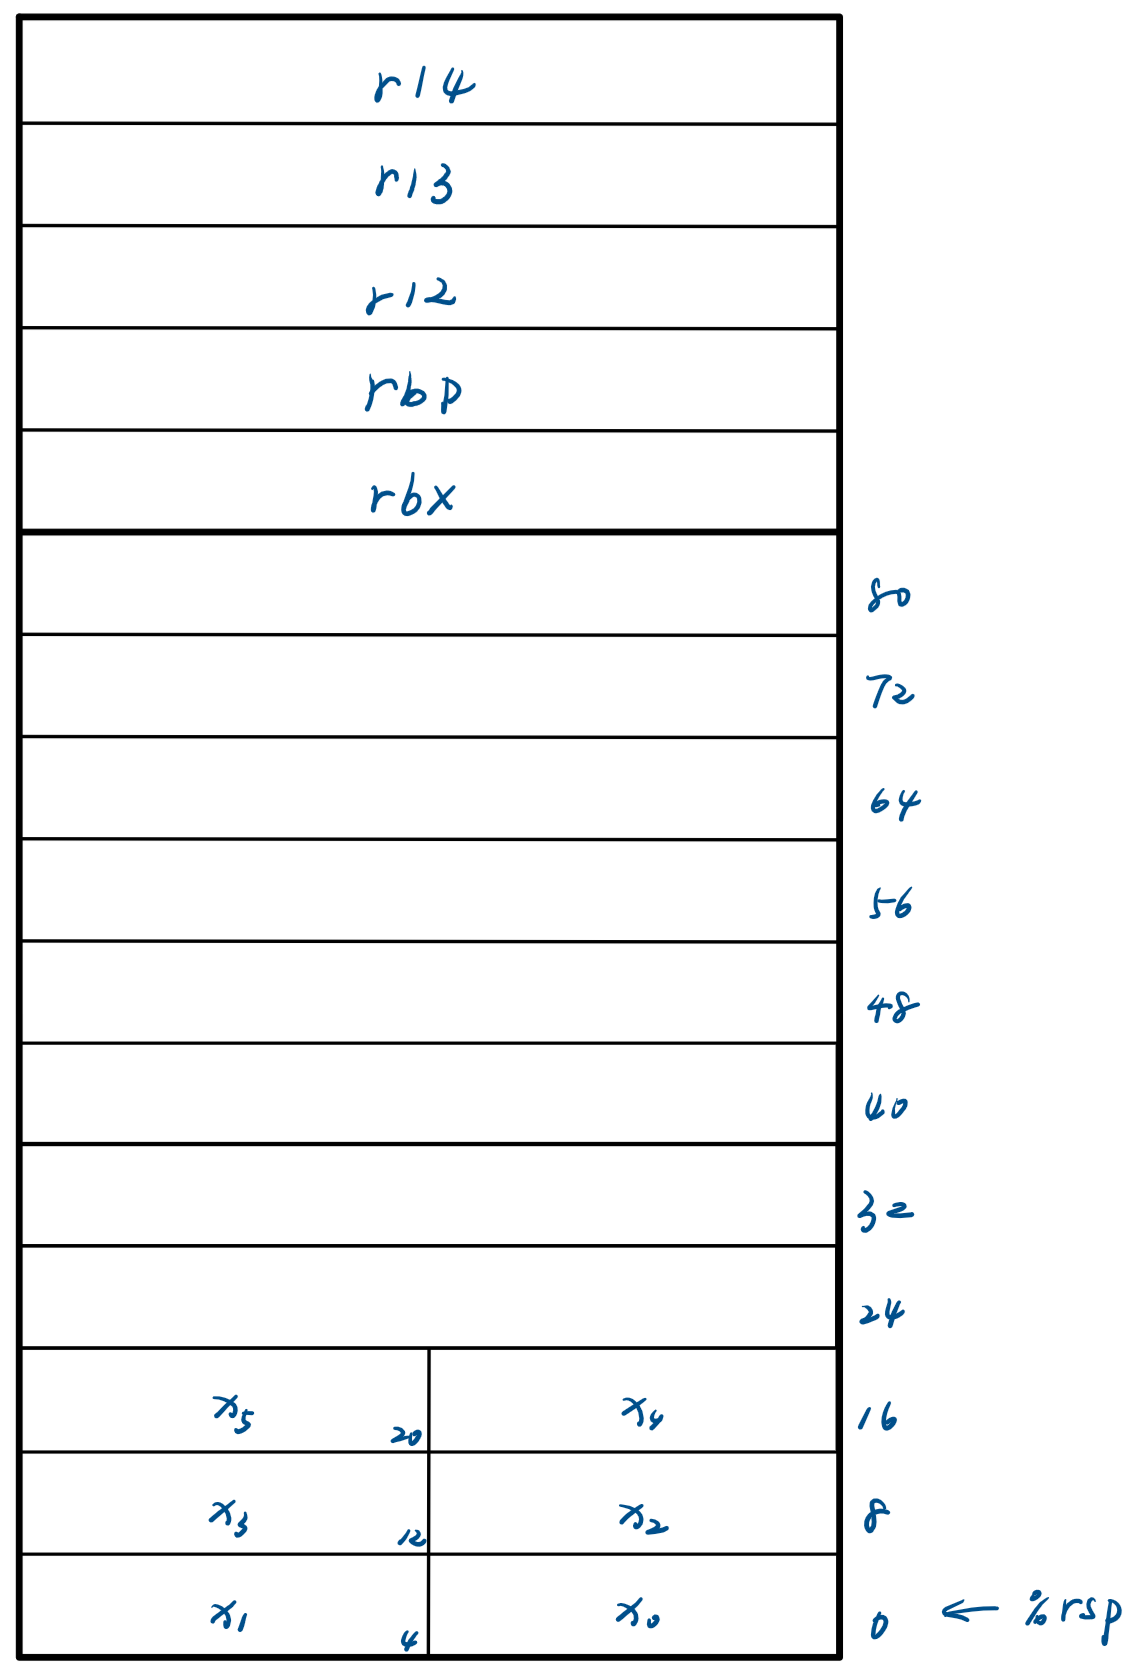 r14
r13
r12
rbp
rbx
80
72
64
56
48
40
32
24
x₅ 20 x₄ 16
x₃ 12 x₂ 8
x₁ 4 x₀ 0 ← %rsp